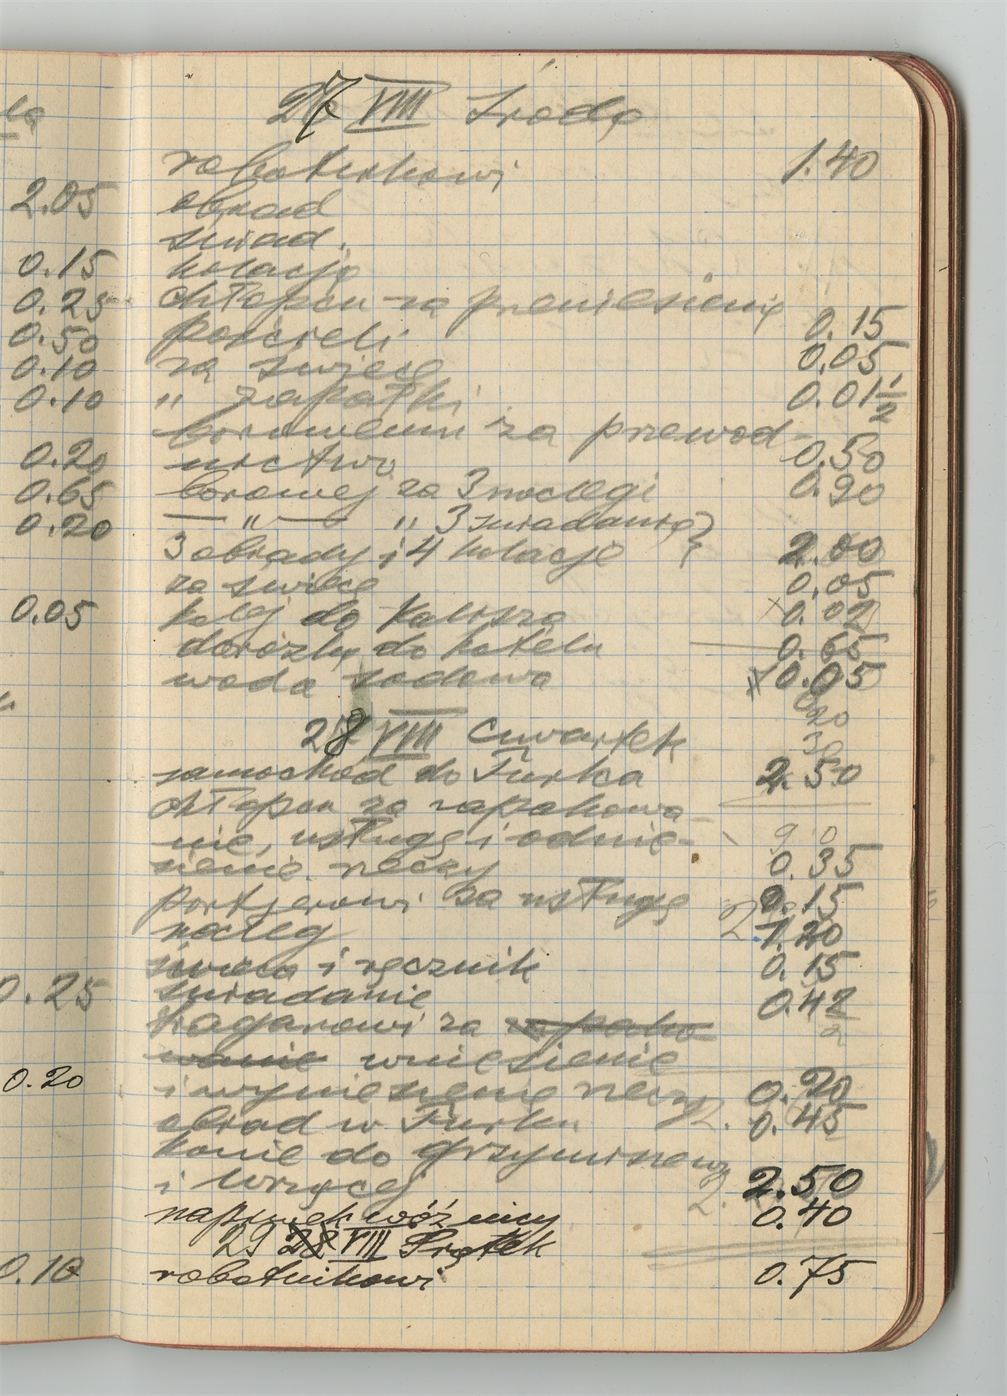 2.05
0.15
0.25
0.50
0.10
0.10
0.20
0.65
0.20
0.05
0.25
0.20
0.10
27 VIII Środa
robotnikowi 1.40
obiad
śniad.
kolacja
chłopcu za przeniesienie
pościeli 0.15
za świecę 0.05
" zapałki 0.01 1/2
borowemu za przewod-
nictwo 0.50
borowej za 3 noclegi 0.90
— " — " 3 śniadania }
3 obiady i 4 kolacje } 2.00
za świecę 0.05
kolej do Kalisza 0.02
dorożka do hotelu 0.65
woda sodowa 0.05
20
30
28 VIII Czwartek
samochód do Turka 2.50
chłopcu za zapakowa-
nie, usługę i odnie-
sienie rzeczy 0.35
portjerowi za usługę 0.15
nocleg 1.20
świeca i ręcznik 0.15
śniadanie 0.42
tragarzowi za zapako
wanie wniesienie
i wyniesienie rzeczy 0.20
obiad w Turku 0.45
konie do Grzymiszewa
i Wrzącej 2.50
napiwek woźnicy 0.40
29 28 VIII Piątek
robotnikowi 0.75